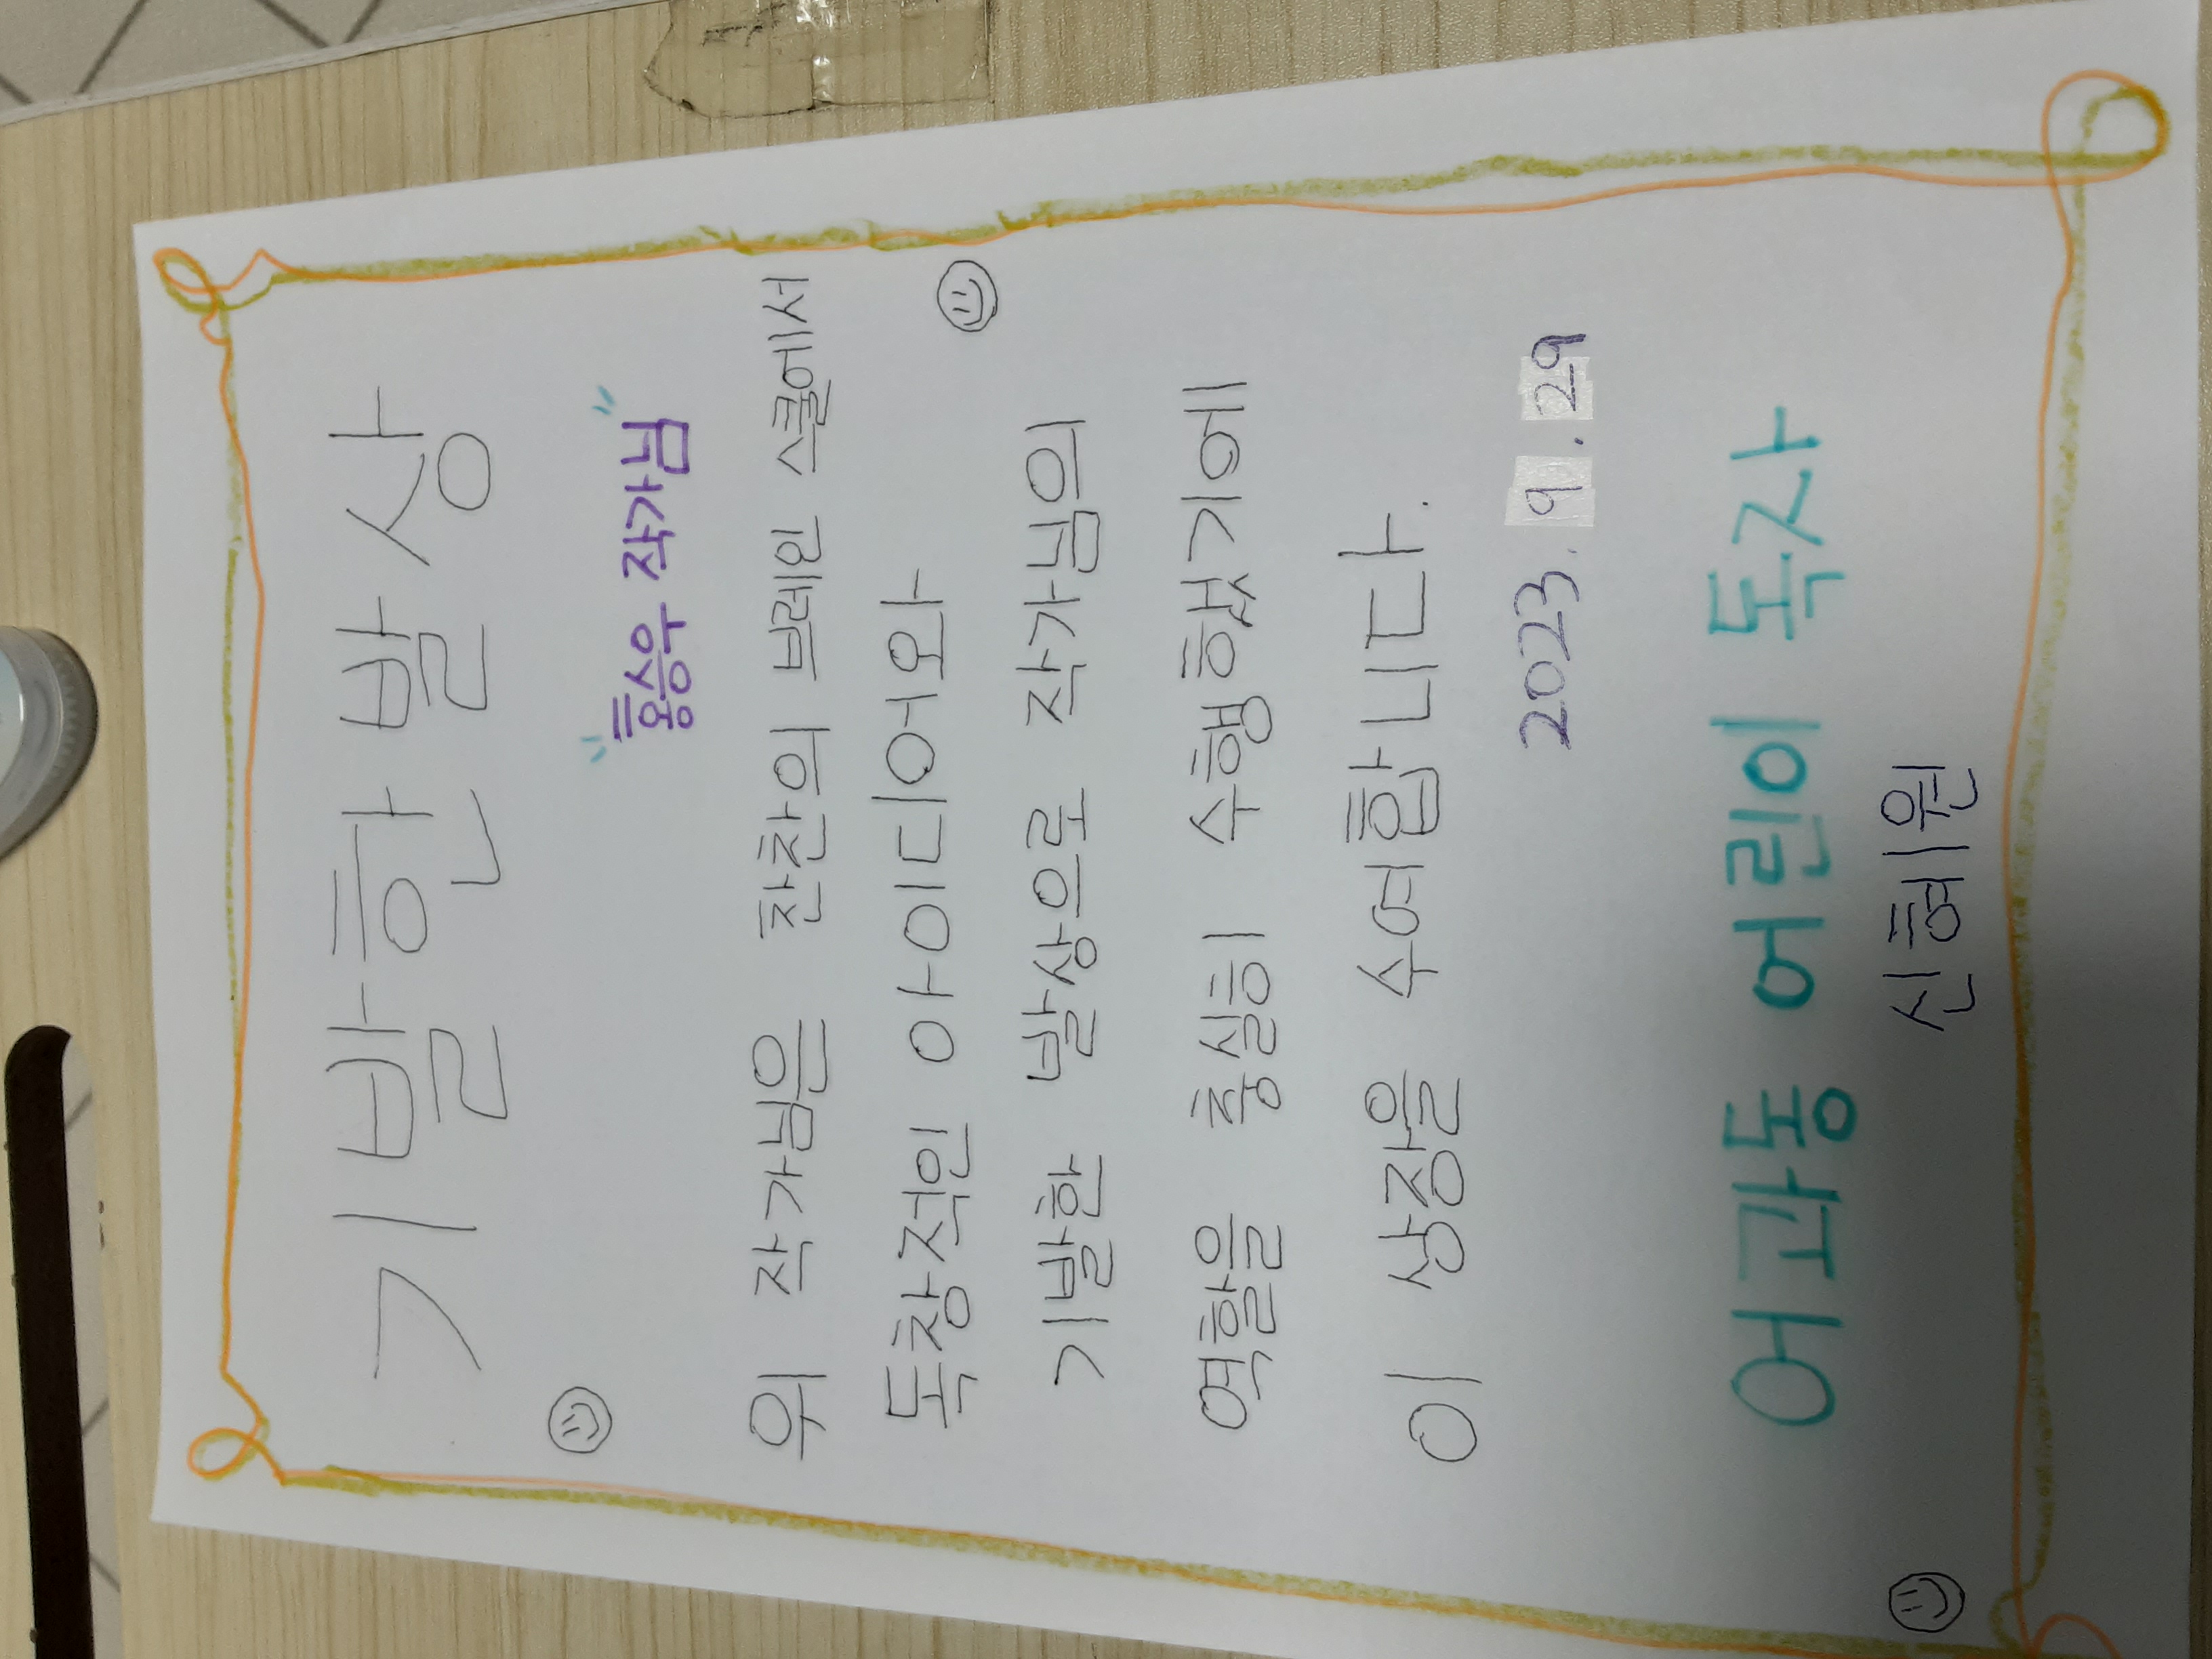 기발한 발상
"홍승우 작가님"
위 작가님은 찬찬의 브레인 스쿨에서
독창적인 아이디어와
기발한 발상으로 작가님의
역할을 충실히 수행했기에
이 상장을 수여합니다.
2023. 9. 29
어과동 어린이 독자
신혜원